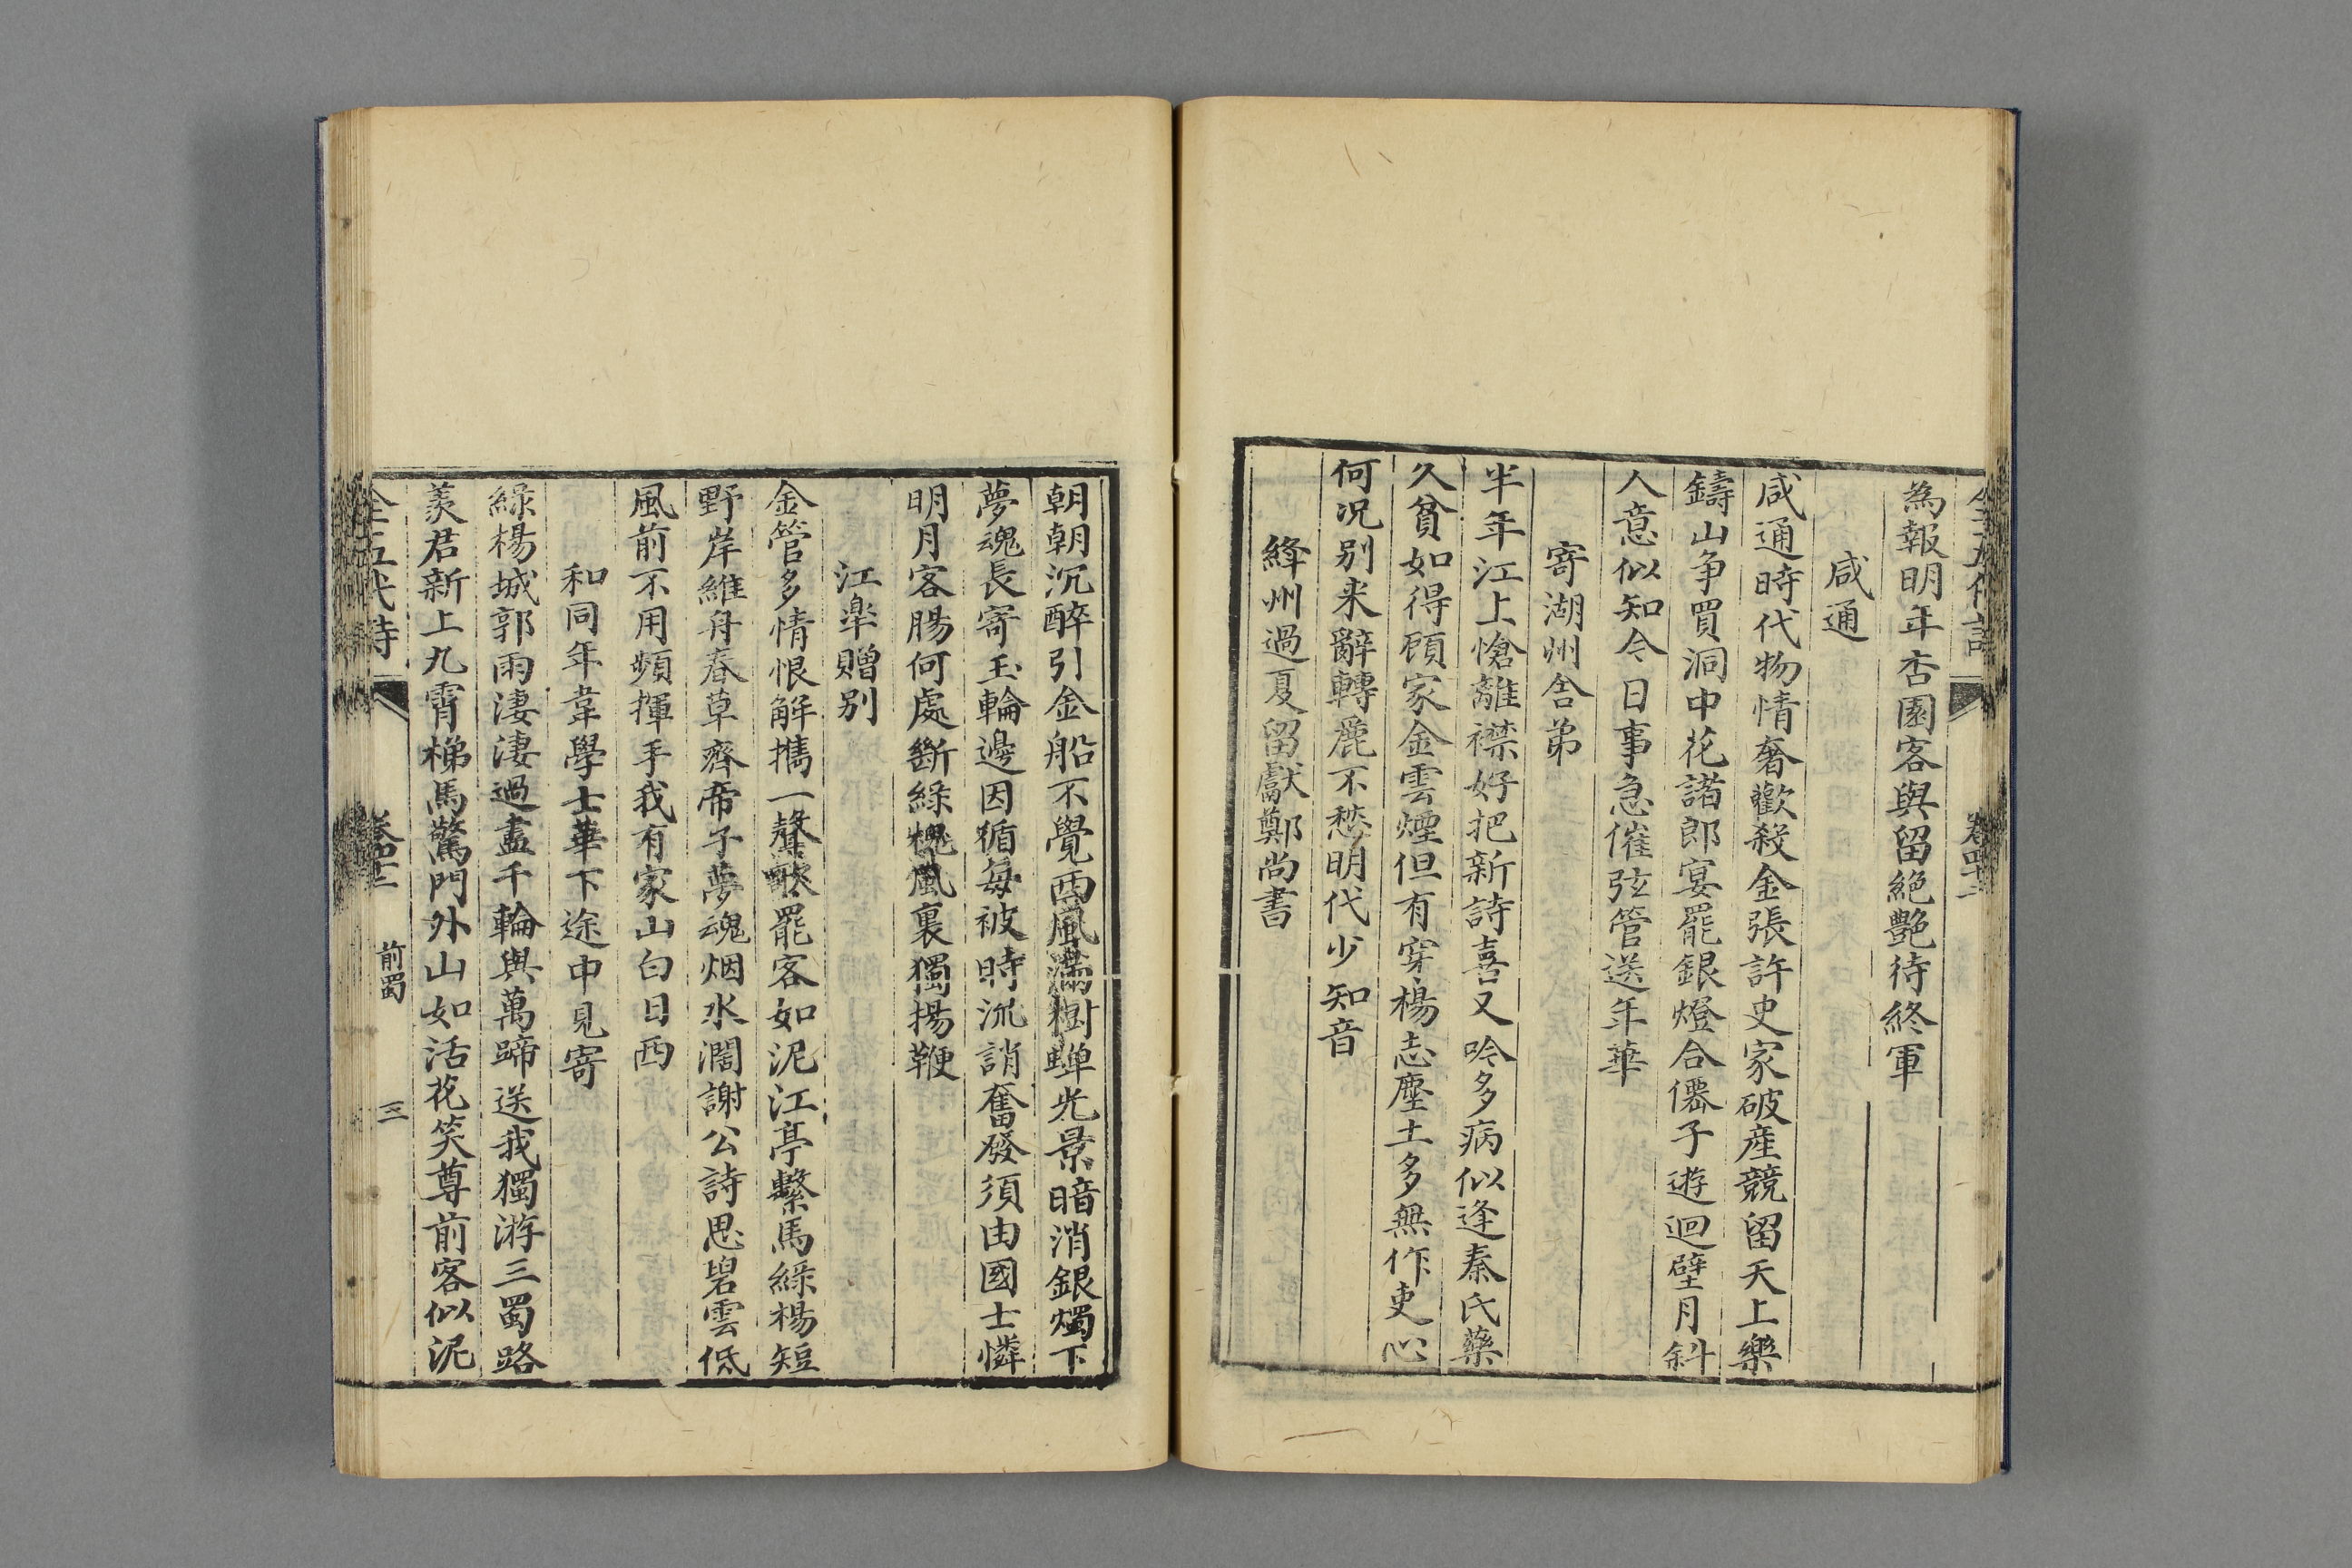 為報明年杏園客與留絕艷待終軍
咸通
咸通時代物情奢歡殺金張許史家破産競留天上樂
鑄山爭買洞中花諸郎宴罷銀燈合僊子遊迴璧月斜
人意似知今日事急催弦管送年華
寄湖州舍弟
半年江上愴離襟好把新詩喜又吟多病似逢秦氏藥
久貧如得顧家金雲煙但有穿楊志塵土多無作吏心
何况别来辭轉麗不愁明代少知音
絳州過夏留獻鄭尚書
朝朝沉醉引金船不覺西風滿樹蟬光景暗消銀燭下
夢魂長寄玉輪邊因循毎被時流誚奮發須由國士憐
明月客腸何處斷綠槐風裏獨揚鞭
江臯贈别
金管多情恨解攜一聲歌罷客如泥江亭繫馬綠楊短
野岸維舟春草齊帝子夢魂烟水濶謝公詩思碧雲低
風前不用頻揮手我有家山白日西
和同年韋學士華下途中見寄
綠楊城郭雨淒淒過盡千輪與萬蹄送我獨游三蜀路
羨君新上九霄梯馬驚門外山如活花笑尊前客似泥
全五代詩 前蜀 三